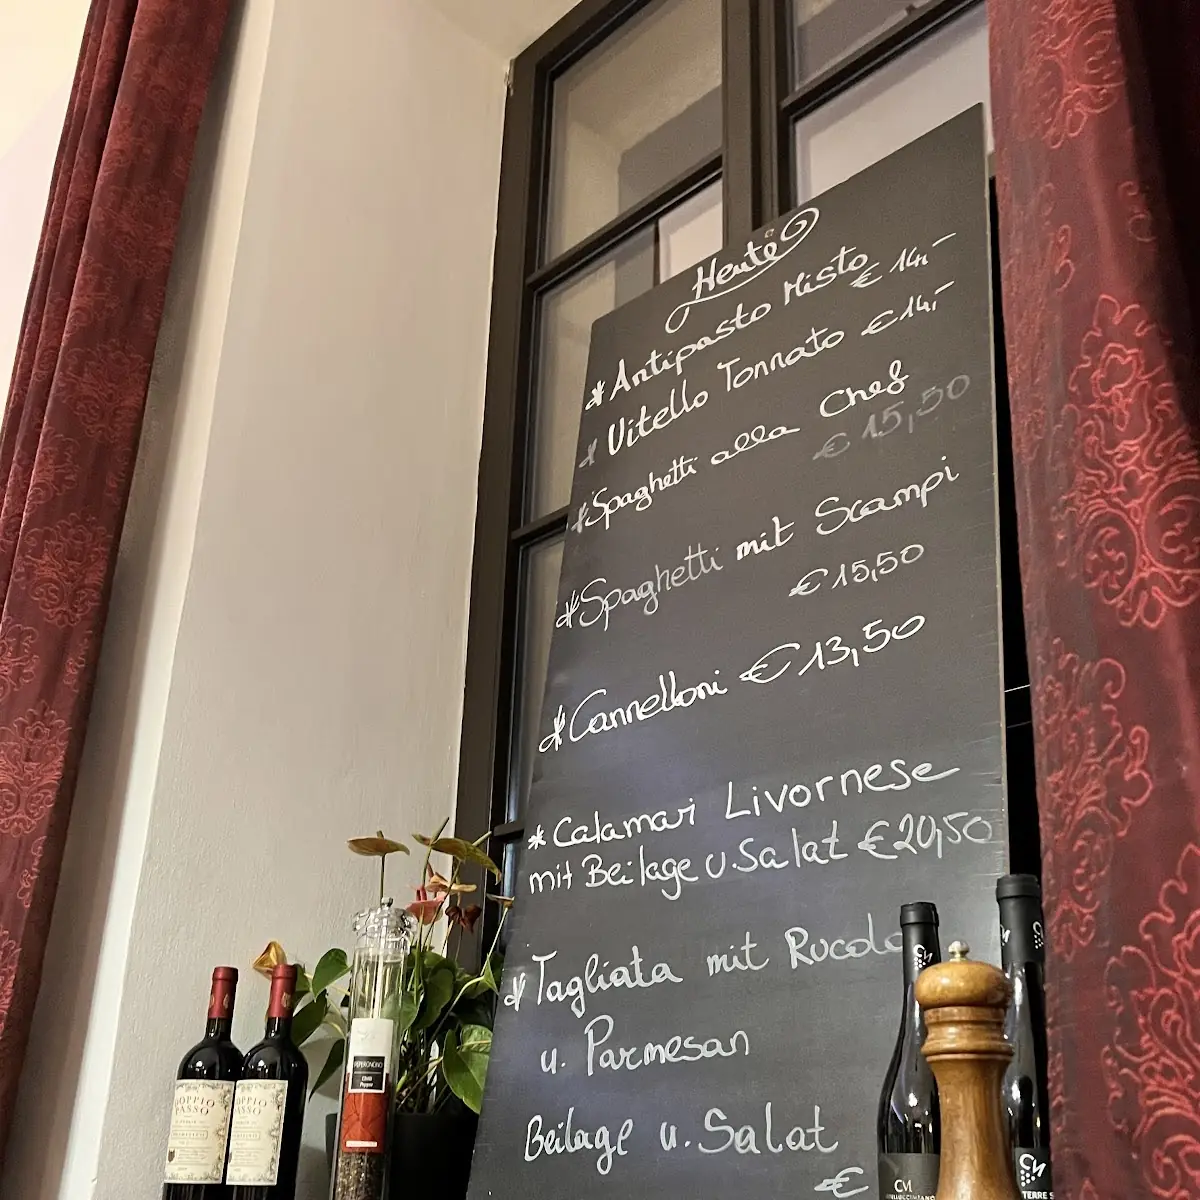 Heute
* Antipasto Misto € 14,-
* Vitello Tonnato € 14,-
* Spaghetti alla Chef
€ 15,50
* Spaghetti mit Scampi
€ 15,50
* Cannelloni € 13,50
* Calamari Livornese
mit Beilage u. Salat € 20,50
* Tagliata mit Rucola
u. Parmesan
Beilage u. Salat
€
DOPPIO
PASSO
DOPPIO
PASSO
PEPERONCINO
Chilli
Pepper
CM
CM
TERRE S